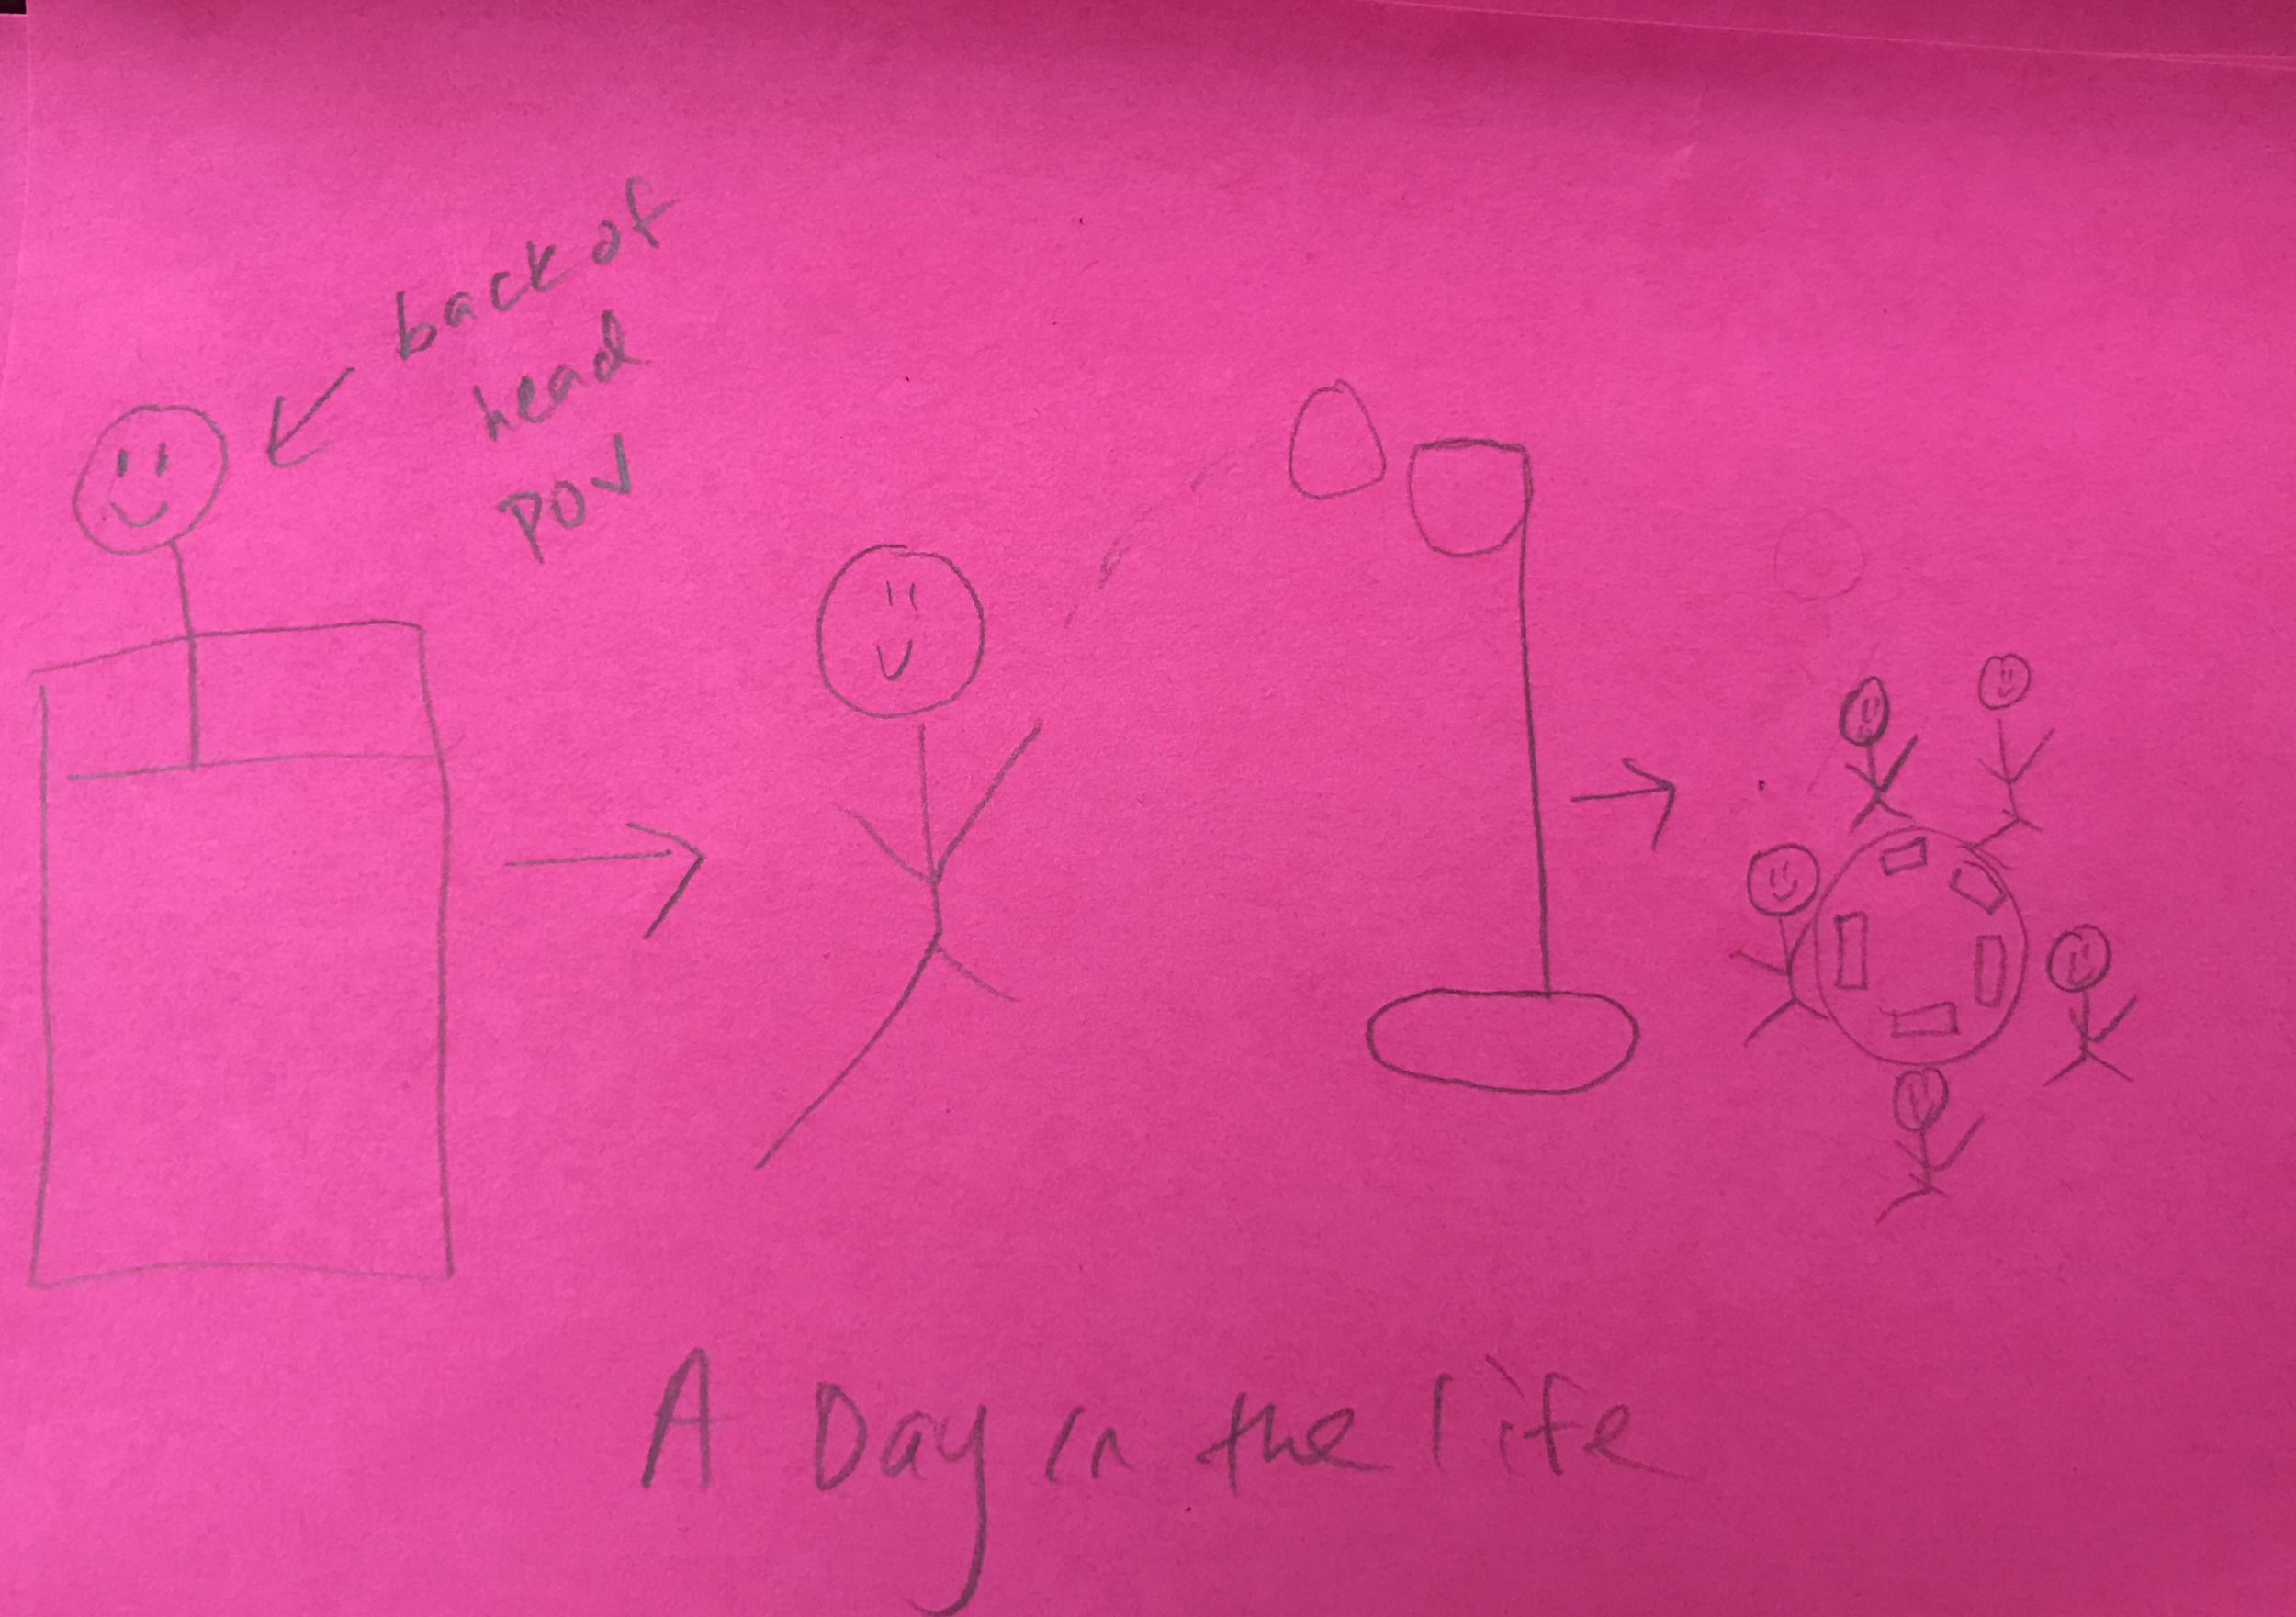 back of
head
POV
A Day in the life